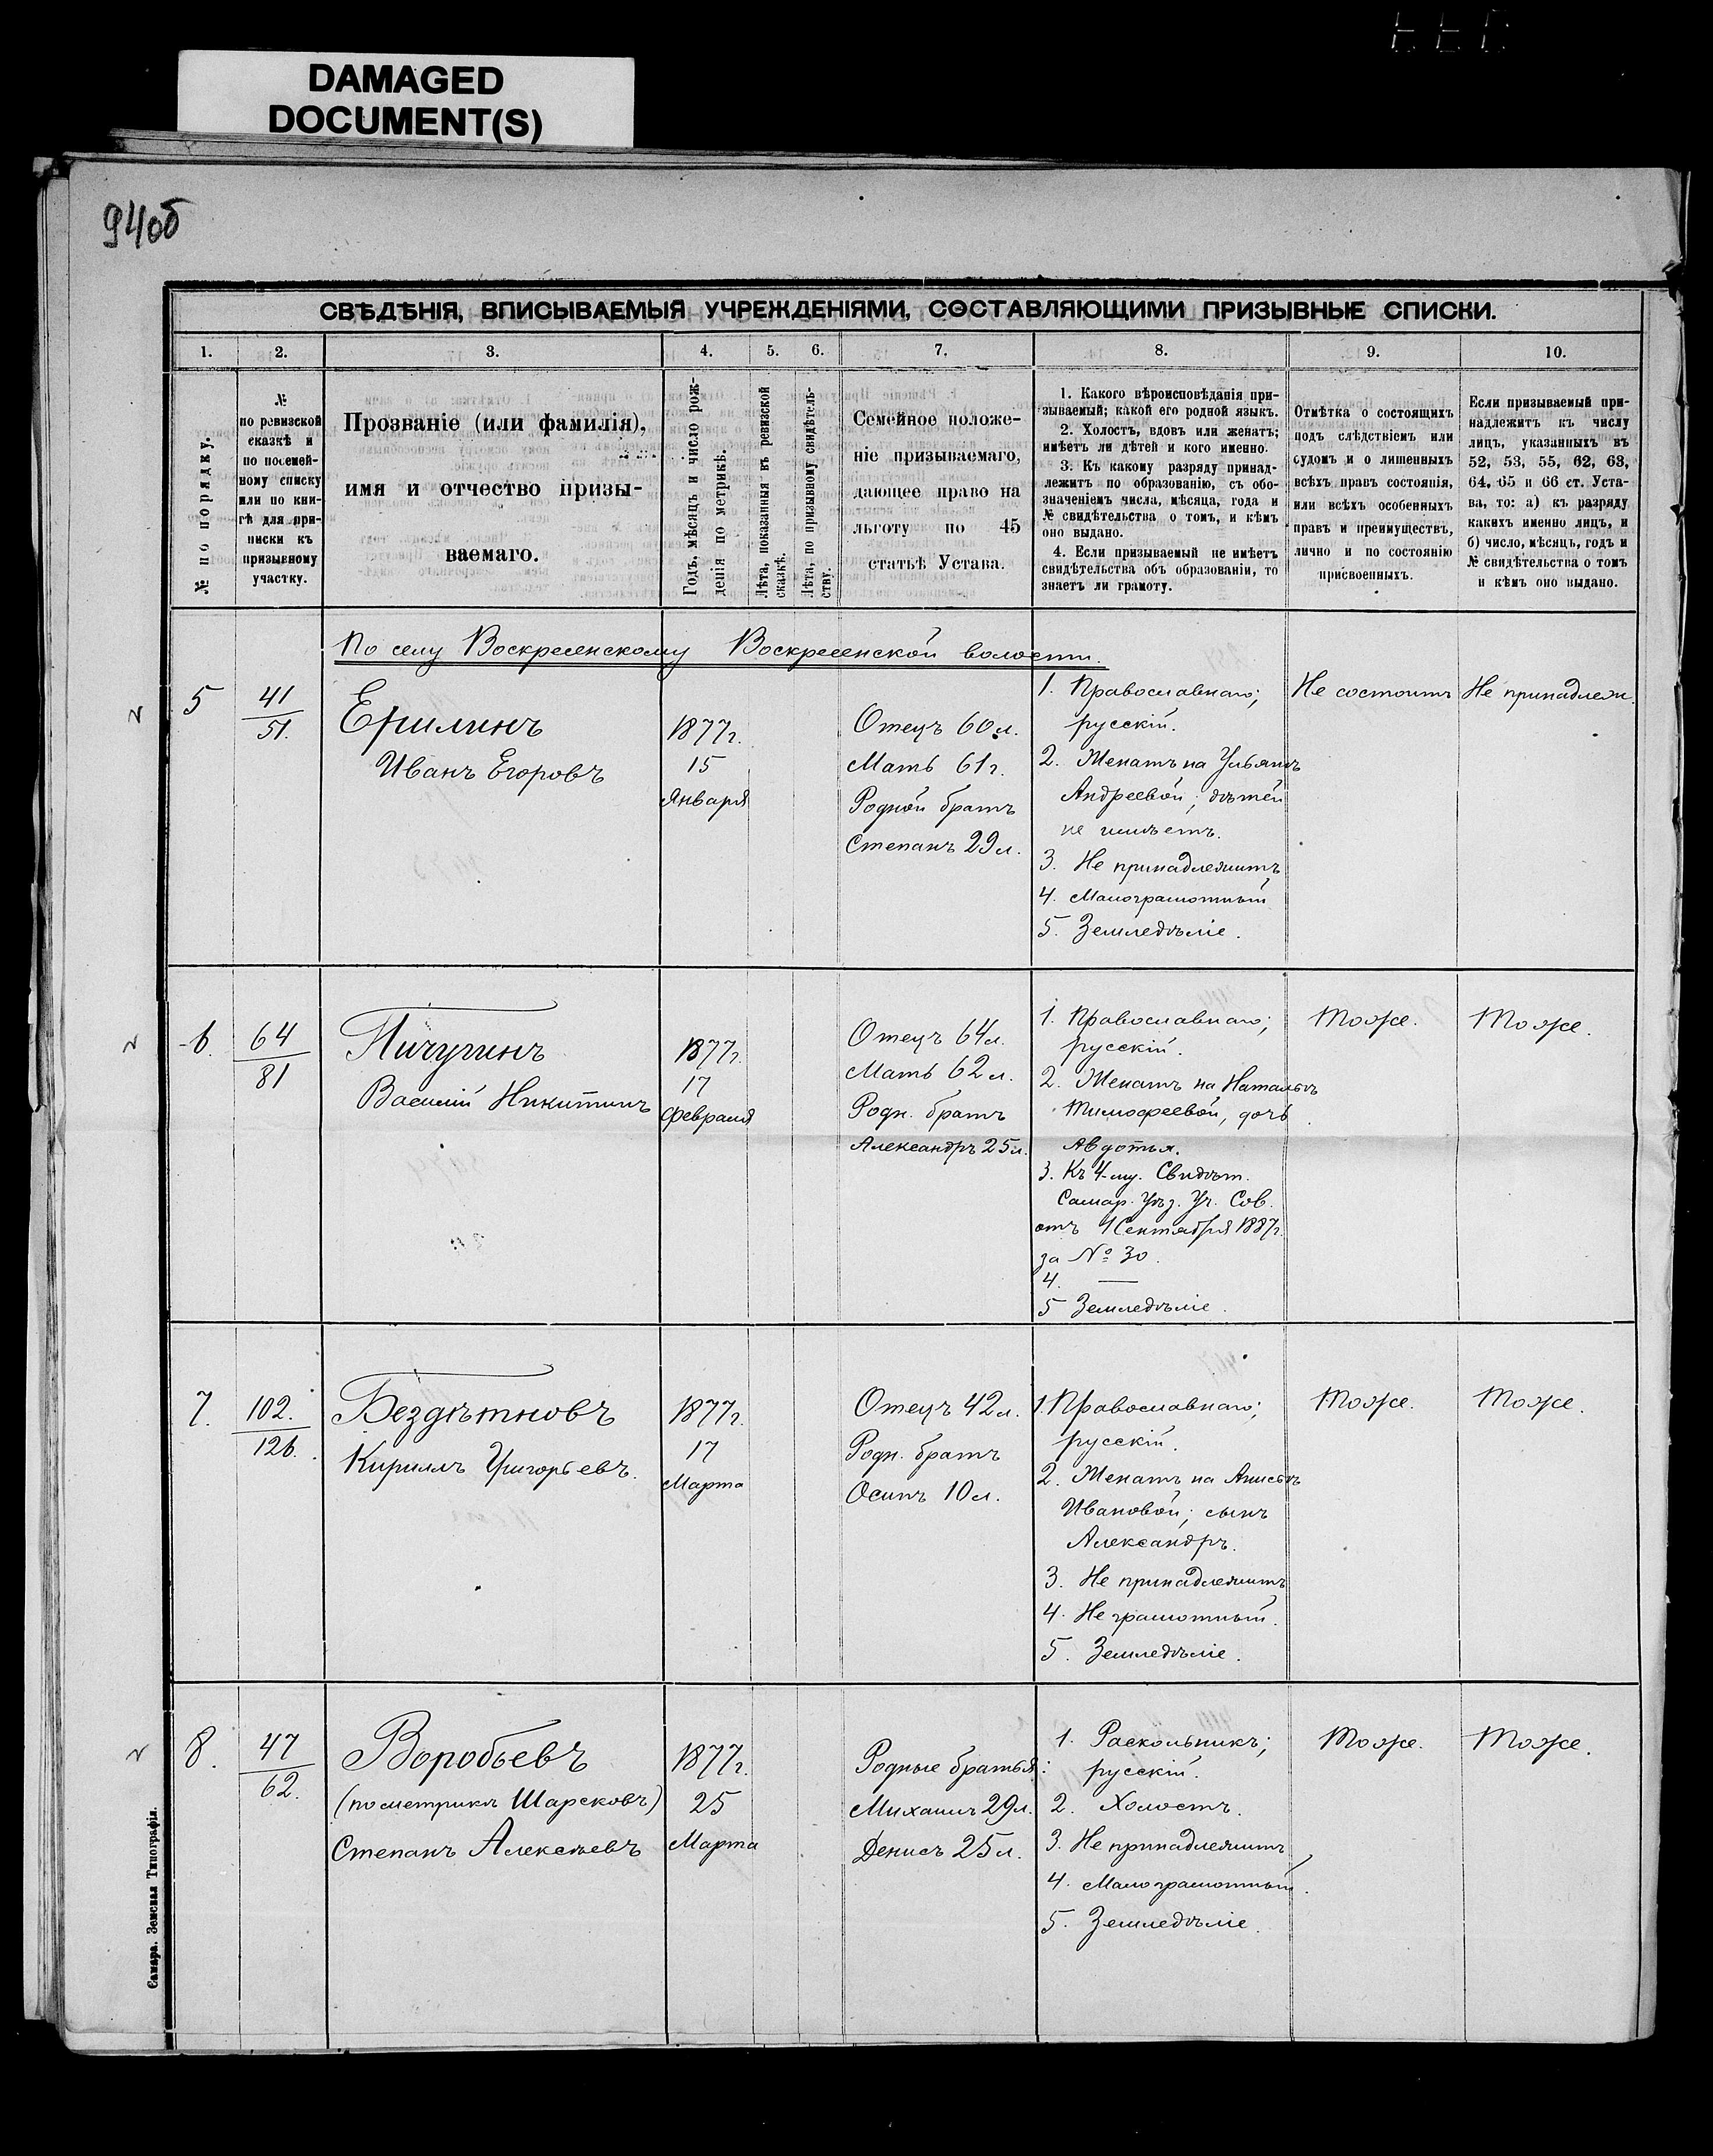 DAMAGED
DOCUMENT(S)
94об
СВѢДѢНІЯ, ВПИСЫВАЕМЫЯ УЧРЕЖДЕНІЯМИ, СОСТАВЛЯЮЩИМИ ПРИЗЫВНЫЕ СПИСКИ.
1. 2. 3. 4. 5. 6. 7. 8. 9. 10.
№ по порядку.
№
по ревизской
сказкѣ и
по посемей-
ному списку
или по кни-
гѣ для при-
писки къ
призывному
участку.
Прозваніе (или фамилія),
имя и отчество призы-
ваемаго.
Годъ, мѣсяцъ и число рож-
денія по метрикѣ.
Лѣта, показанныя въ ревизской
сказкѣ.
Лѣта, по призывному свидѣтель-
ству.
Семейное положе-
ніе призываемаго,
дающее право на
льготу по 45
статьѣ Устава.
1. Какого вѣроисповѣданія при-
зываемый; какой его родной языкъ.
2. Холостъ, вдовъ или женатъ;
имѣетъ ли дѣтей и кого именно.
3. Къ какому разряду принад-
лежитъ по образованію, съ обо-
значеніемъ числа, мѣсяца, года и
№ свидѣтельства о томъ, и кѣмъ
оно выдано.
4. Если призываемый не имѣетъ
свидѣтельства объ образованіи, то
знаетъ ли грамоту.
Отмѣтка о состоящихъ
подъ слѣдствіемъ или
судомъ и о лишенныхъ
всѣхъ правъ состоянія,
или всѣхъ особенныхъ
правъ и преимуществъ,
лично и по состоянію
присвоенныхъ.
Если призываемый при-
надлежитъ къ числу
лицъ, указанныхъ въ
52, 53, 55, 62, 63,
64, 65 и 66 ст. Уста-
ва, то: а) къ разряду
какихъ именно лицъ, и
б) число, мѣсяцъ, годъ и
№ свидѣтельства о томъ
и кѣмъ оно выдано.
По селу Воскресенскому Воскресенской волости.
5
41
51.
Ерилинъ
Иванъ Егоровъ
1877г.
15
Января
Отецъ 60л.
Мать 61г.
Родной братъ
Степанъ 29л.
1. Православнаго;
русскій.
2. Женатъ на Ульянѣ
Андреевой; дѣтей
не имѣетъ.
3. Не принадлежитъ
4. Малограмотный
5. Земледѣліе.
Не состоитъ
Не принадлеж.
6.
64
81
Пичугинъ
Василій Никитинъ
1877г.
17
Февраля
Отецъ 64л.
Мать 62л.
Родн. братъ
Александръ 25л.
1. Православнаго;
русскій.
2. Женатъ на Натальѣ
Тимофеевой, дочь
Авдотья.
3. Къ 4-му. Свидѣт.
Самар. Уѣз. Уч. Сов.
отъ 1 Сентября 1887г.
за № 30.
4. —
5 Земледѣліе.
Тоже.
Тоже.
7.
102.
126.
Бездѣтновъ
Кириллъ Григорьевъ.
1877г.
17
Марта
Отецъ 42л.
Родн. братъ
Осипъ 10л.
1. Православнаго;
русскій.
2. Женатъ на Анисьѣ
Ивановой; сынъ
Александръ.
3. Не принадлежитъ
4. Не грамотный.
5. Земледѣліе.
Тоже.
Тоже.
8.
47
62.
Воробьевъ
(по метрикѣ Шарсковъ)
Степанъ Алексѣевъ
1877г.
25
Марта
Родные братья:
Михаилъ 29л.
Денисъ 25л.
1. Раскольникъ;
русскій.
2. Холостъ.
3. Не принадлежитъ
4. Малограмотный.
5. Земледѣліе.
Тоже.
Тоже.
Самара. Земская Типографія.